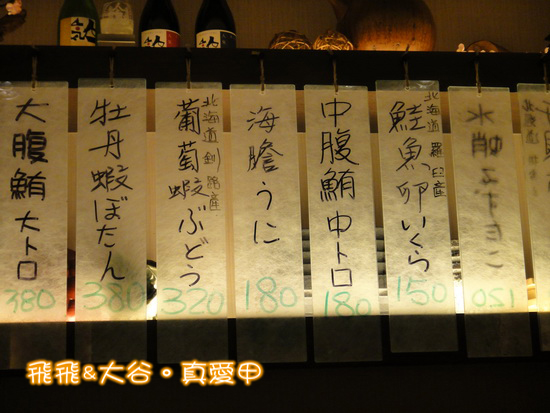 大腹鮪 大トロ
380
牡丹蝦 ぼたん
380
北海道 釧路産
葡萄蝦 ぶどう
320
海膽 うに
180
中腹鮪 中トロ
180
北海道 羅臼産
鮭魚卵 いくら
150
120
飛飛&大谷。真愛甲